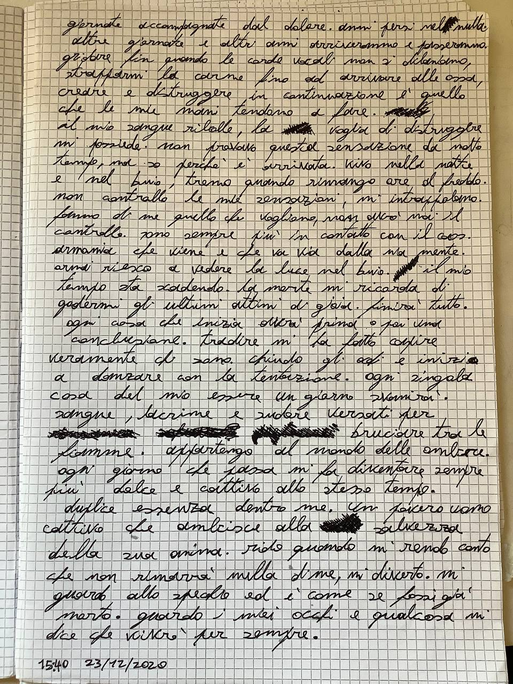 giornate accompagnate dal dolore. anni persi nel nulla
altre giornate e altri anni arriveranno e passeranno.
gridare fin quando le corde vocali non si dilaniano,
strapparmi la carne fino ad arrivare alle ossa,
creare e distruggere in continuazione è quello
che le mie mani tendono a fare.
il mio sangue ribolle, la voglia di distruggere
mi possiede. non provavo questa sensazione da molto
tempo, ma so perchè è arrivata. vivo nella notte
e nel buio, tremo quando rimango ore al freddo.
non controllo le mie sensazioni, mi intrappolano.
fanno di me quello che vogliono, non avrò mai il
controllo. sono sempre più in contatto con il caos.
armonia che viene e che va via dalla mia mente.
ormai riesco a vedere la luce nel buio. il mio
tempo sta scadendo. la morte mi ricorda di
godermi gli ultimi attimi di gioia. finirà tutto.
ogni cosa che inizia avrà prima o poi una
conclusione. tradire mi ha fatto capire
veramente chi sono. chiudo gli occhi e inizio
a danzare con la tentazione. ogni singola
cosa del mio essere un giorno svanirà.
sangue, lacrime e sudore versati per
bruciare tra le
fiamme. appartengo al mondo delle ombre.
ogni giorno che passa mi fa diventare sempre
più dolce e cattivo allo stesso tempo.
duplice essenza dentro me. un povero uomo
cattivo che ambisce alla salvezza
della sua anima. rido quando mi rendo conto
che non rimarrà nulla di me, mi diverto. mi
guardo allo specchio ed è come se fossi già
morto. guardo i miei occhi e qualcosa mi
dice che vivrò per sempre.
15:40 23/12/2020